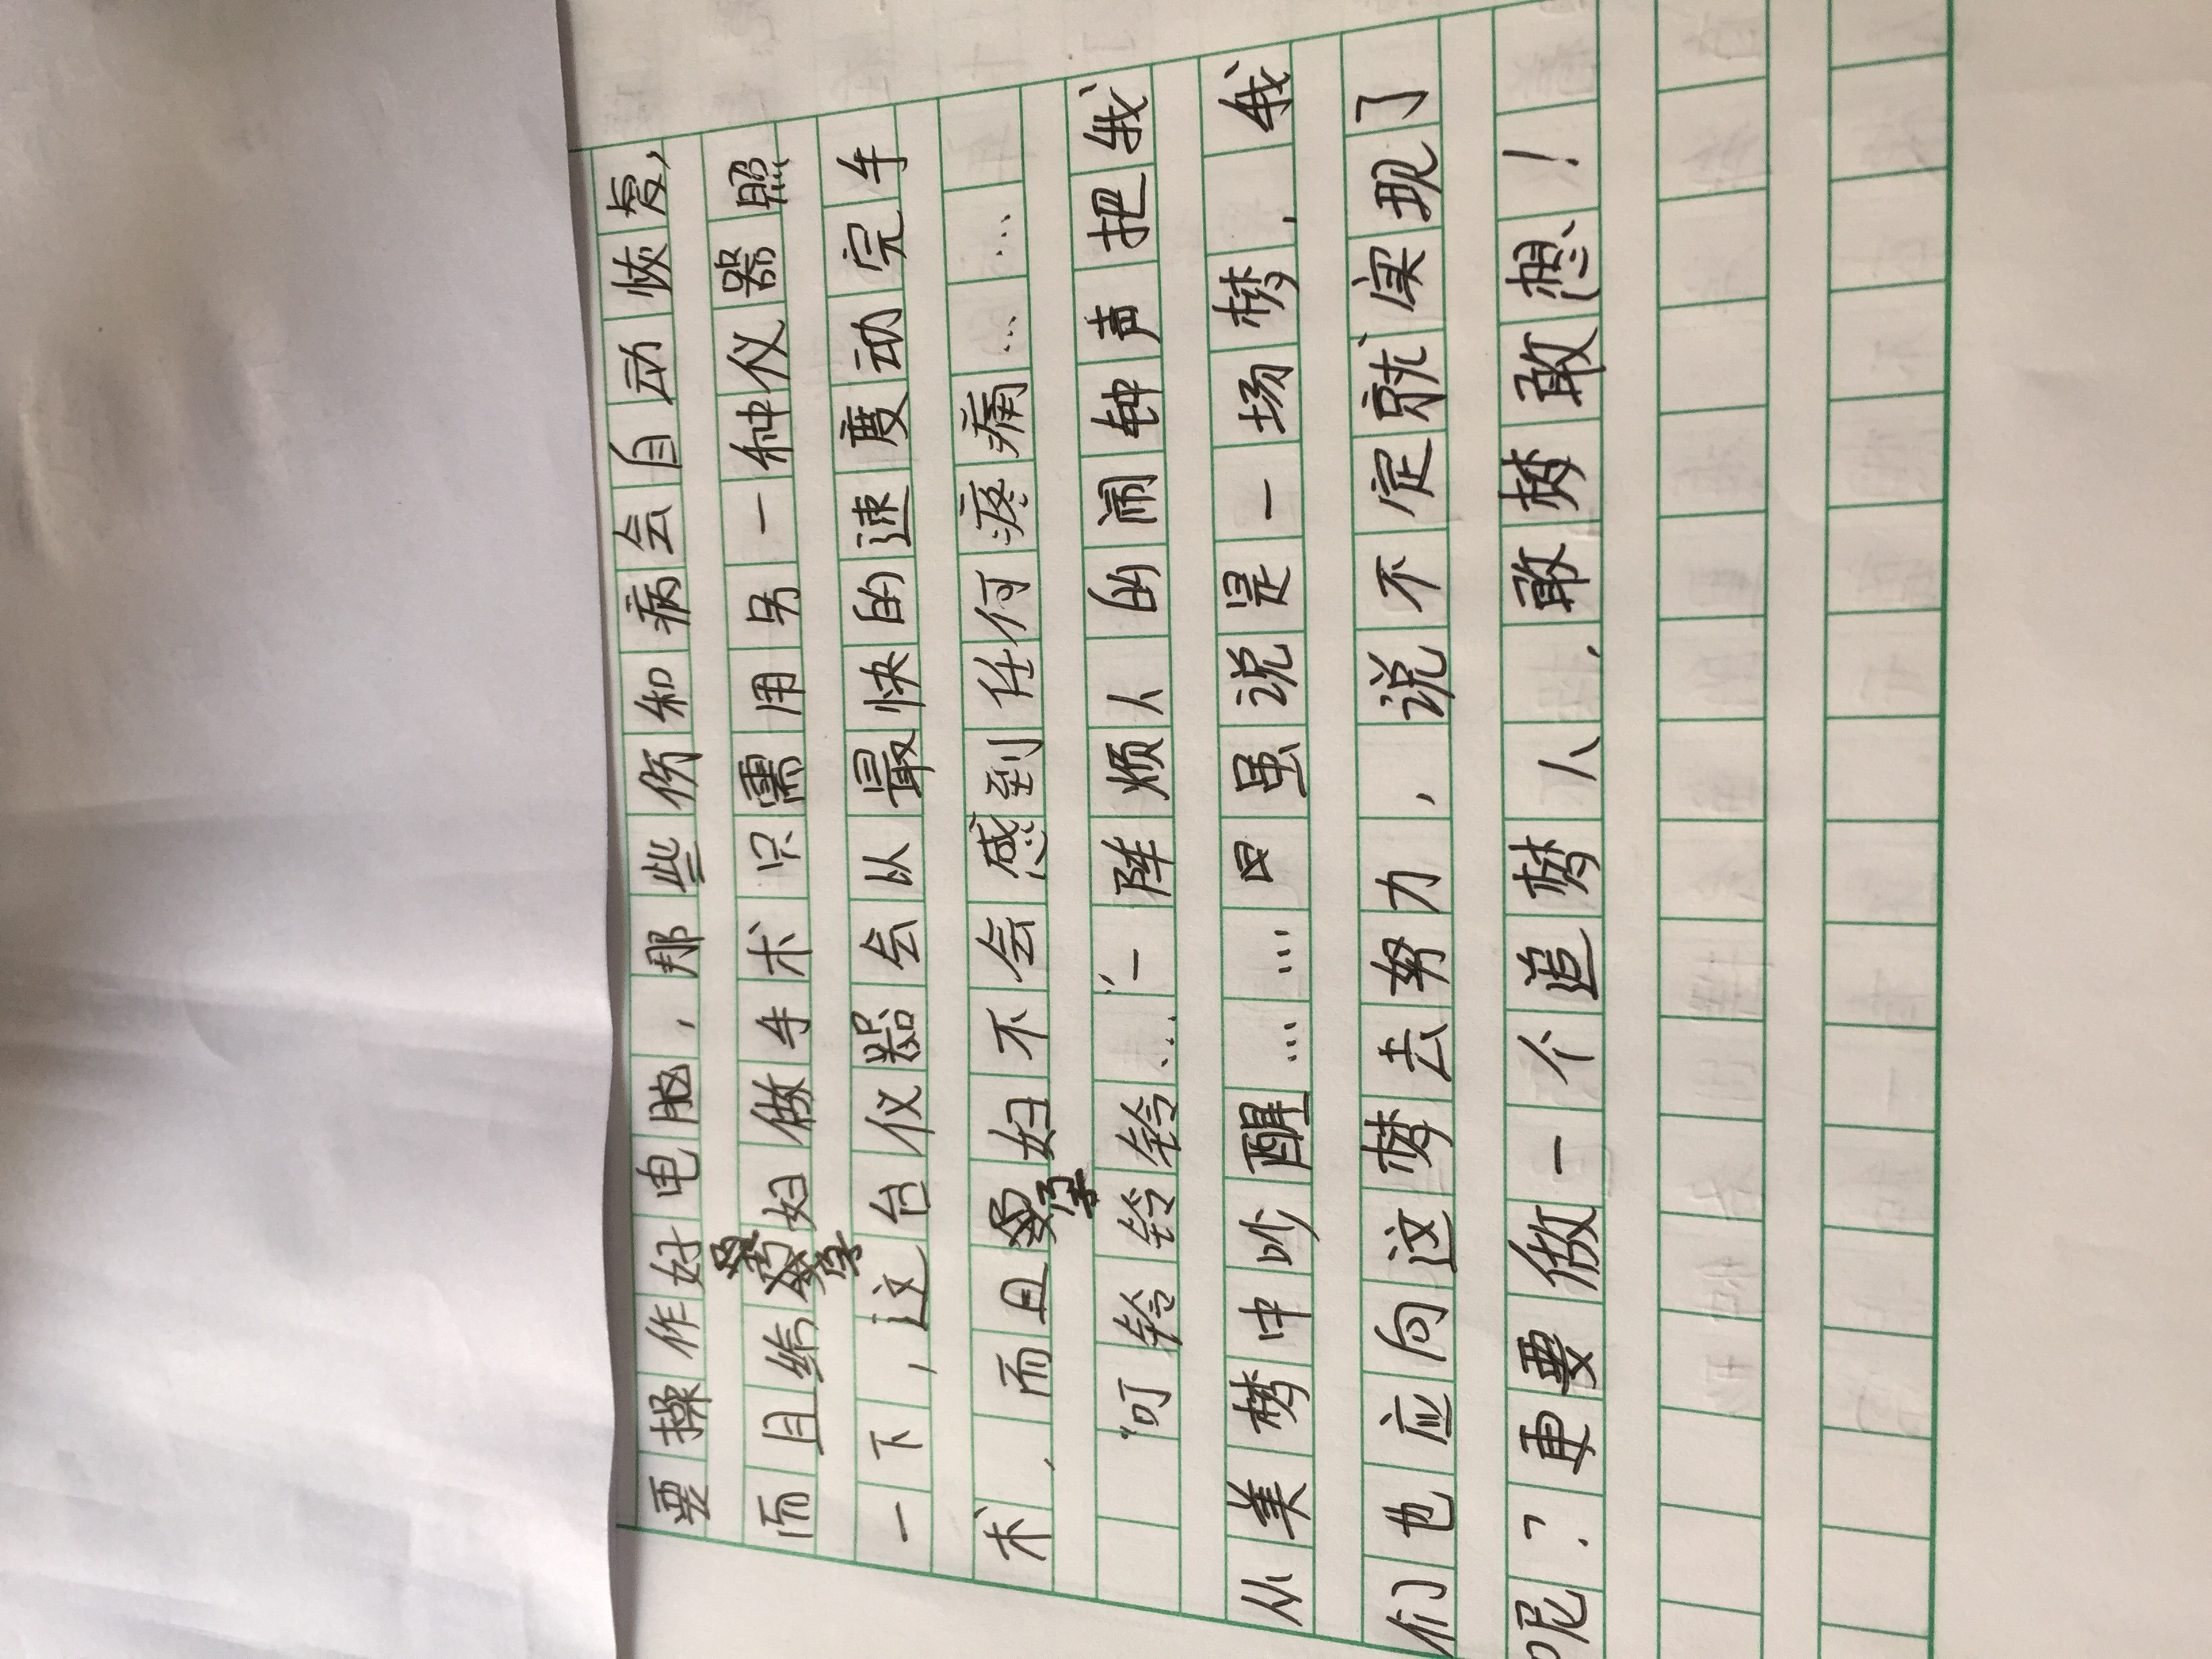 要操作好电脑，那些伤和病会自动恢复，
而且给孕妇做手术只需用另一种仪器照
一下，这台仪器会以最快的速度动完手
术，而且孕妇不会感到任何疼痛……
“叮铃铃铃…”一阵烦人的闹钟声把我
从美梦中吵醒……曰虽说是一场梦，我
们也应向这梦去努力，说不定就实现了
呢？更要做一个追梦人，敢梦敢想！